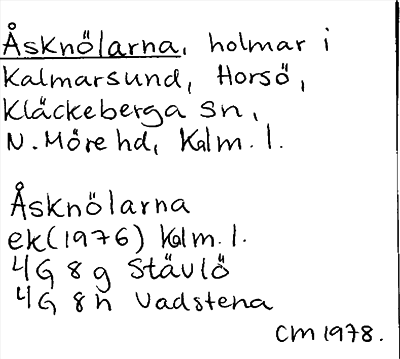 Åsknölarna, holmar i
Kalmarsund, Horsö,
Kläckeberga sn,
N. Möre hd, Kalm. l.
Åsknölarna
ek (1976) Kalm. l.
4G 8g Stävlö
4G 8h Vadstena
CM 1978.